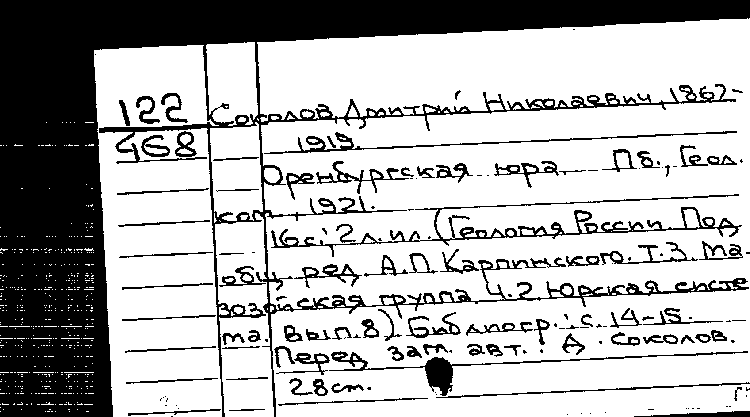 122
468
Соколов, Дмитрий Николаевич, 1867-
1919.
Оренбургская юра. Пб., Геол.
ком., 1921.
16с.; 2 л. ил. (Геология России. Под
общ. ред. А.П. Карпинского. Т.3. Ма-
зозойская группа. Ч.2 Юрская систе
ма. Вып.8) Библиогр.: с. 14-15.
Перед загл. авт.: Д. Соколов.
28см.